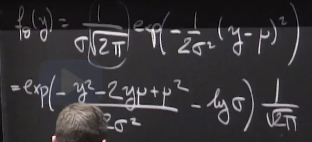 f_θ(y) = 1/(σ√(2π)) exp(-1/(2σ²) (y-μ)²)
= exp(- (y²-2yμ+μ²)/(2σ²) - log σ) 1/√(2π)